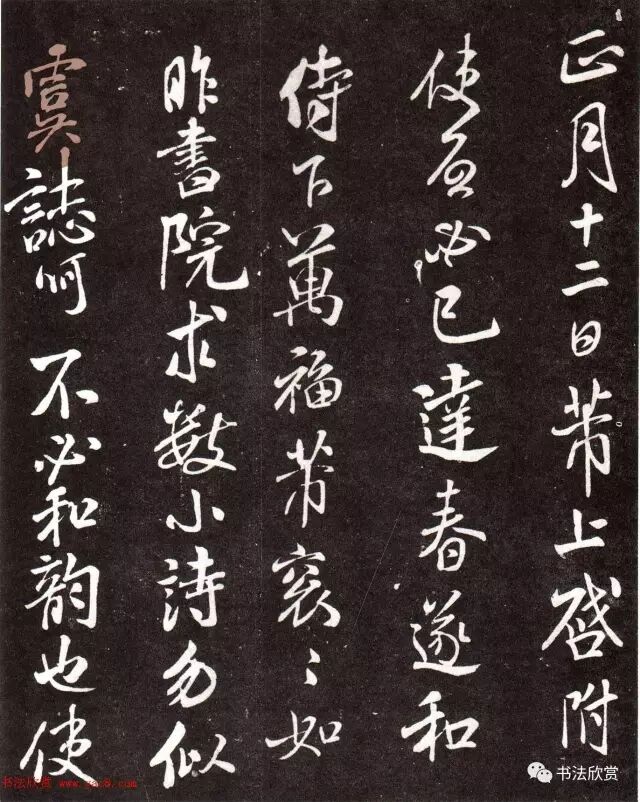 正月十二日芾上啓附
使必已達春遂和
侍下萬福芾衮〻如
昨書院求數小詩勿似
虞誌呵 不必和韻也使
书法欣赏 www.sac8.com
书法欣赏